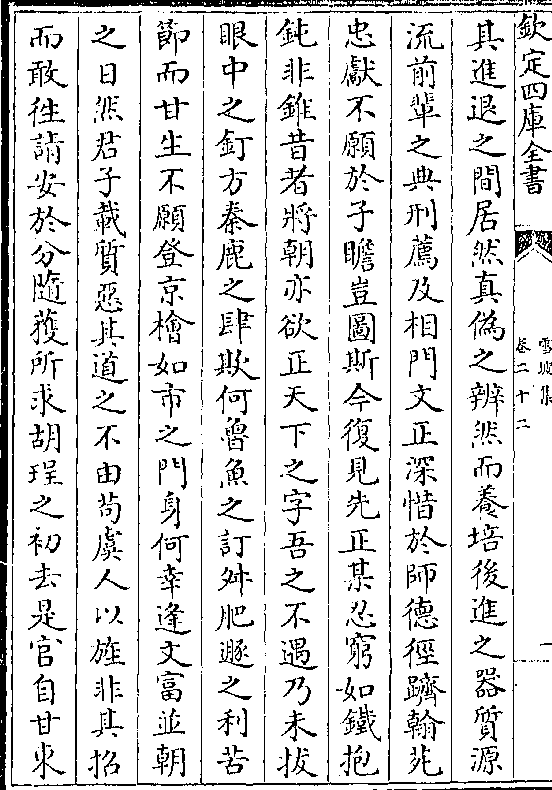 欽定四庫全書
雪坡集
卷二十二
其進退之間居然真偽之辨然而養培後進之器質源
流前輩之典刑薦及相門文正深惜於師德徑躋翰苑
忠獻不願於子瞻豈圖斯今復見先正某忍窮如鐵抱
鈍非錐昔者將朝亦欲正天下之字吾之不遇乃未拔
眼中之釘方秦鹿之肆欺何魯魚之訂舛肥豚之利苦
節而甘生不願登京檜如市之門身何幸逢文富並朝
之日然君子載質惡其道之不由苟虞人以旌非其招
而敢徃請安於分隨獲所求胡珵之初去是官自甘東